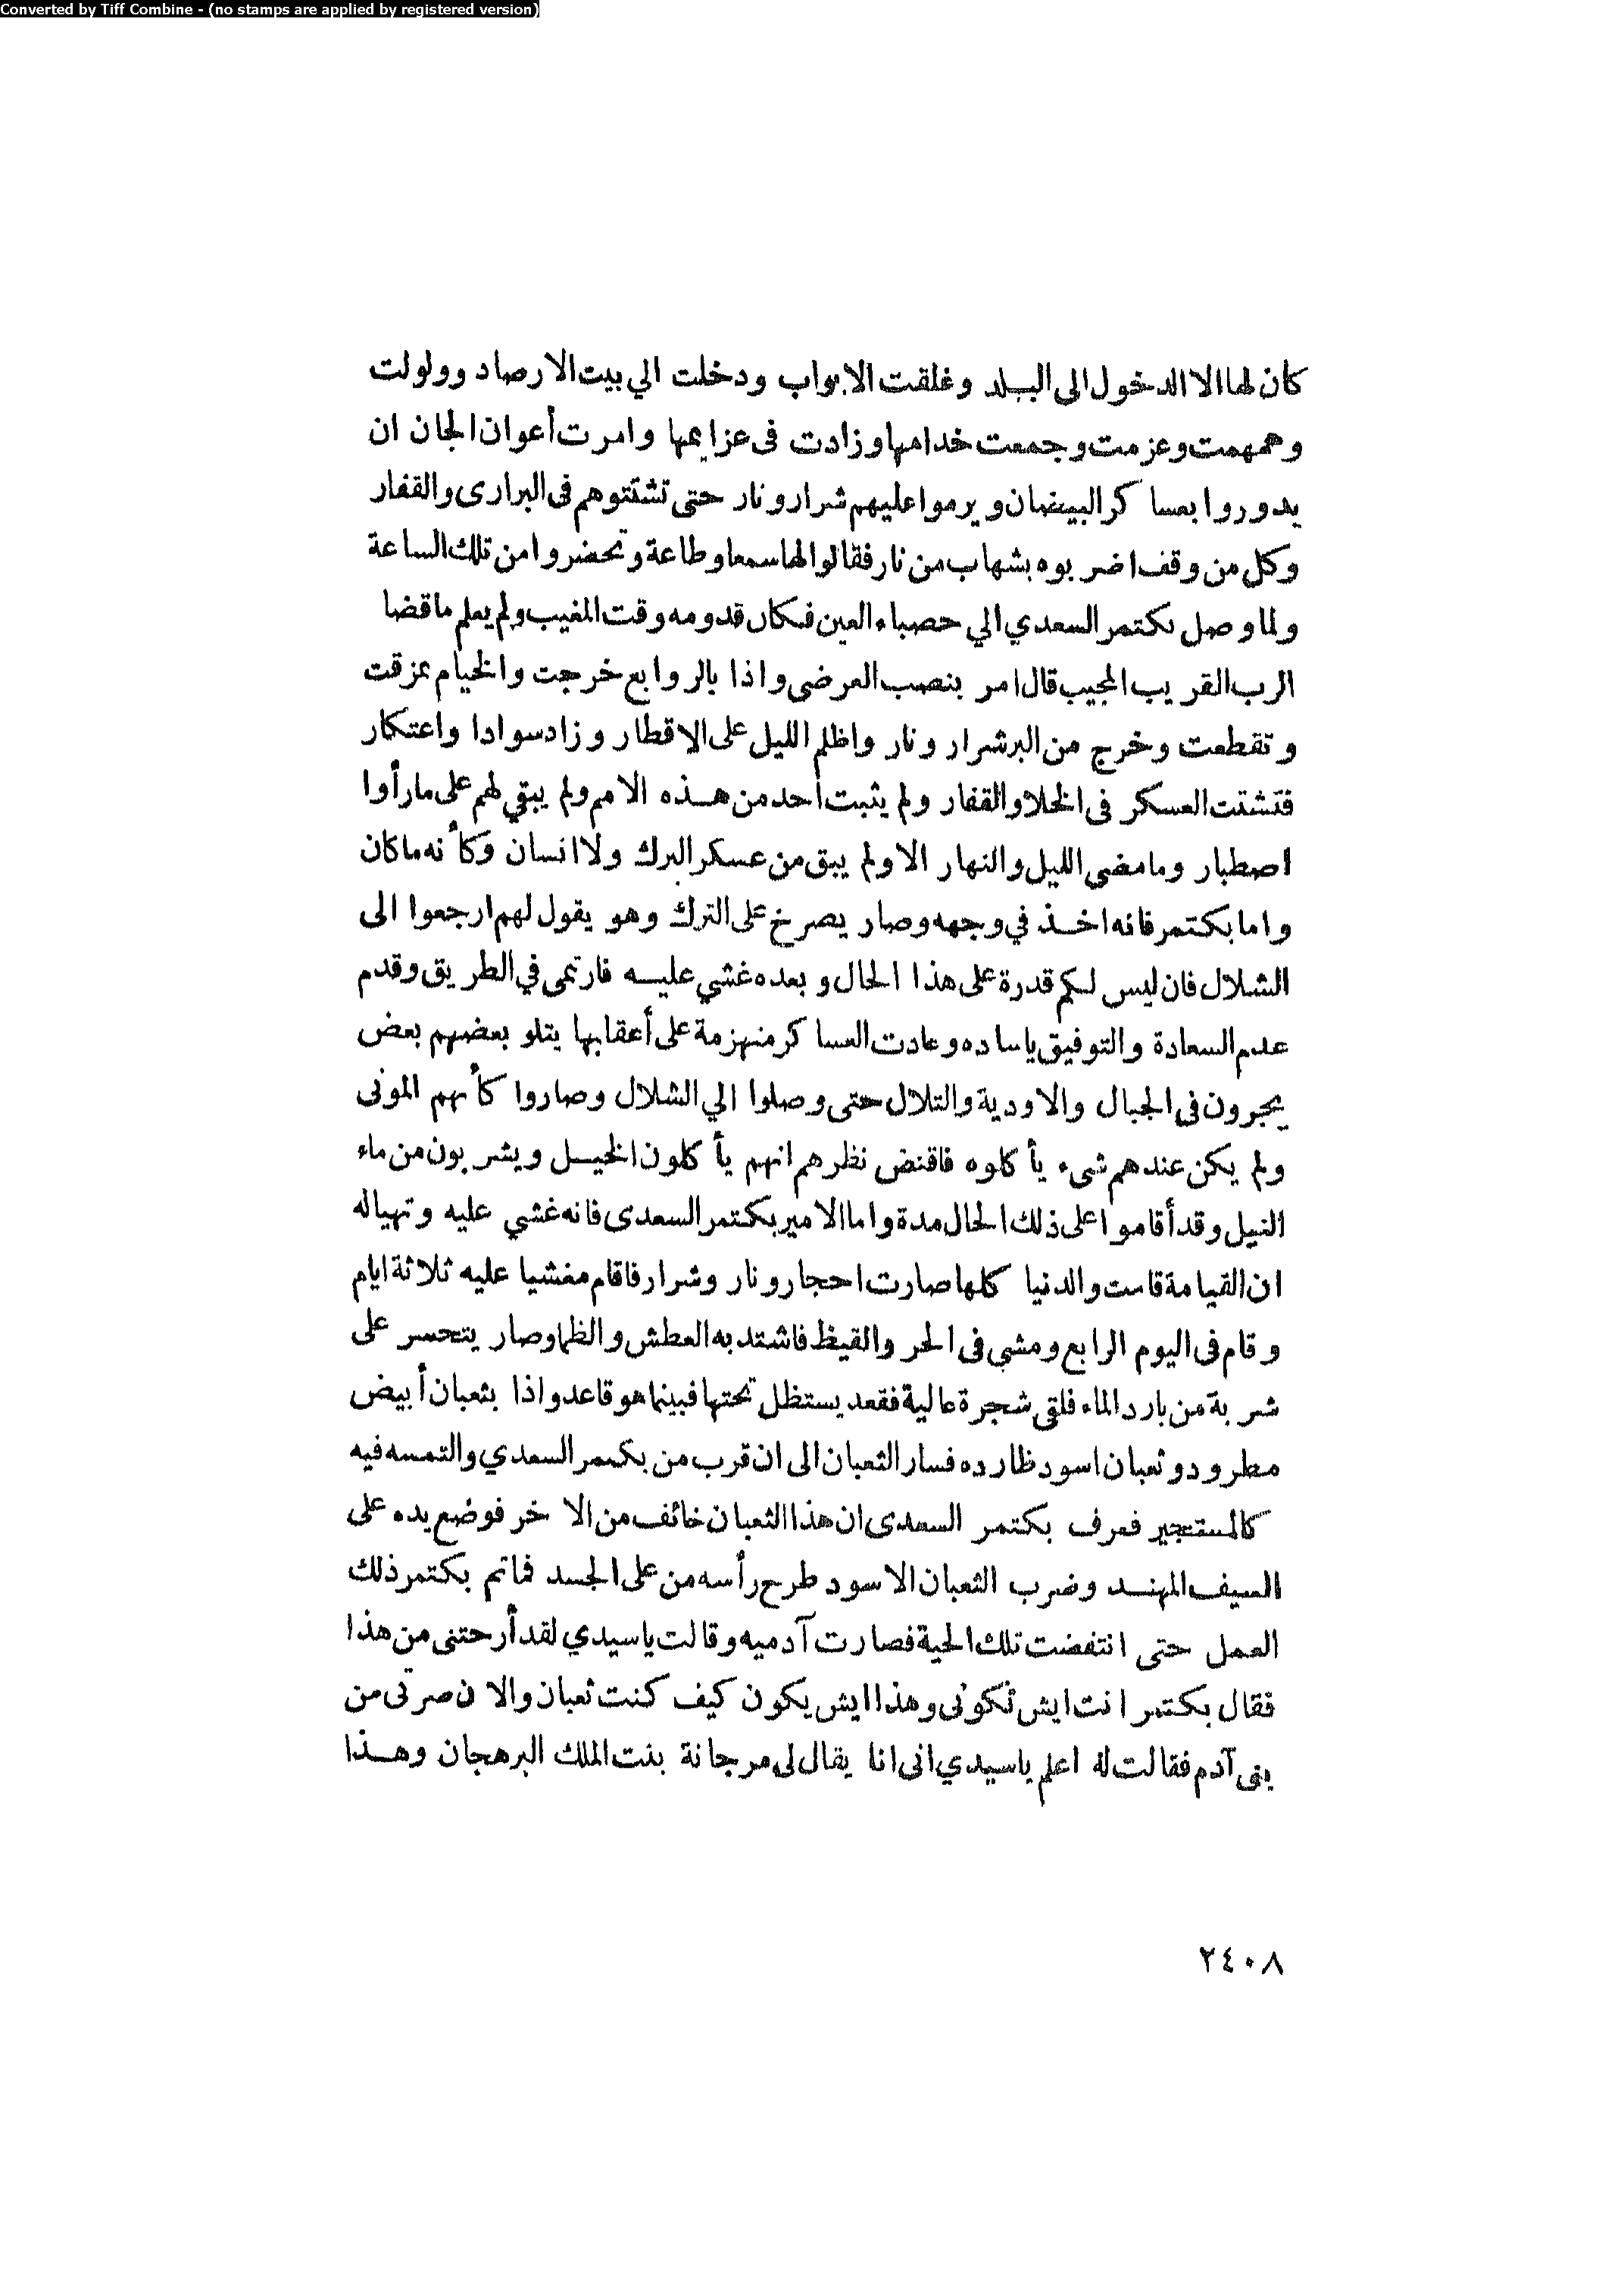 Converted by Tiff Combine - (no stamps are applied by registered version)
كان لها الا الدخول الى البلد وغلقت الابواب ودخلت الي بيت الارصاد وولولت
وهمهمت وعزمت وجمعت خدامها وزادت فى عزايمها وامرت أعوان الجان ان
يدوروا بعساكر البيضان ويرموا عليهم شرار ونار حتى تشتتوهم فى البرارى والقفار
وكل من وقف اضربوه بشهاب من نار فقالوا لها سمعا وطاعة وتحضروا من تلك الساعة
ولما وصل بكتمر السعدي الي حصباء العين فكان قدومه وقت المغيب ولم يعلم ما قضا
الرب القريب المجيب قال امر بنصب العرضى واذا بالروابع خرجت والخيام تمزقت
وتقطعت وخرج من البر شرار ونار واظلم الليل على الاقطار وزاد سوادا واعتكار
فتشتت العسكر فى الخلا والقفار ولم يثبت أحد من هـذه الامم ولم يبقي لهم على ما رأوا
اصطبار وما مضى الليل والنهار الا ولم يبق من عسكر البرك ولا انسان وكأنه ما كان
واما بكتمر فانه اخـذ في وجهه وصار يصرخ على الترك وهو يقول لهم ارجعوا الى
الشلال فان ليس لكم قدرة على هذا الحال وبعده غشي عليـه فارتمى في الطريق وقدم
عدم السعادة والتوفيق ياساده وعادت العساكر منهزمة على أعقابها يتلو بعضهم بعض
يجرون فى الجبال والاودية والتلال حتى وصلوا الي الشلال وصاروا كأنهم الموتى
ولم يكن عندهم شىء يأكلوه فاقتض نظرهم انهم يأكلون الخيـل ويشربون من ماء
النيل وقد أقاموا على ذلك الحال مدة واما الامير بكتمر السعدى فانه غشي عليه وتهياله
ان القيامة قامت والدنيا كلها صارت احجار ونار وشرار فاقام مغشيا عليه ثلاثة ايام
وقام فى اليوم الرابع ومشى فى الحر والقيظ فاشتد به العطش والظما وصار يتحسر على
شربة من بارد الماء فلقى شجرة عالية فقعد يستظل تحتها فبينما هو قاعد واذا بثعبان أبيض
مطرود وثعبان اسود طارده فسار الثعبان الى ان قرب من بكتمر السعدي والتمسه فيه
كالمستجير فعرف بكتمر السعدى ان هذا الثعبان خائف من الاخر فوضع يده على
السيف المهنـد وضرب الثعبان الاسود طرح رأسه من على الجسد فماتم بكتمر ذلك
العمل حتى انتفضت تلك الحية فصارت آدميه وقالت ياسيدي لقد أرحتنى من هذا
فقال بكتمر انت ايش تكونى وهذا ايش يكون كيف كنت ثعبان والان صرتى من
بنى آدم فقالت له اعلم ياسيدي انى انا يقال لى مرجانة بنت الملك البرهجان وهـذا
٢٤٠٨